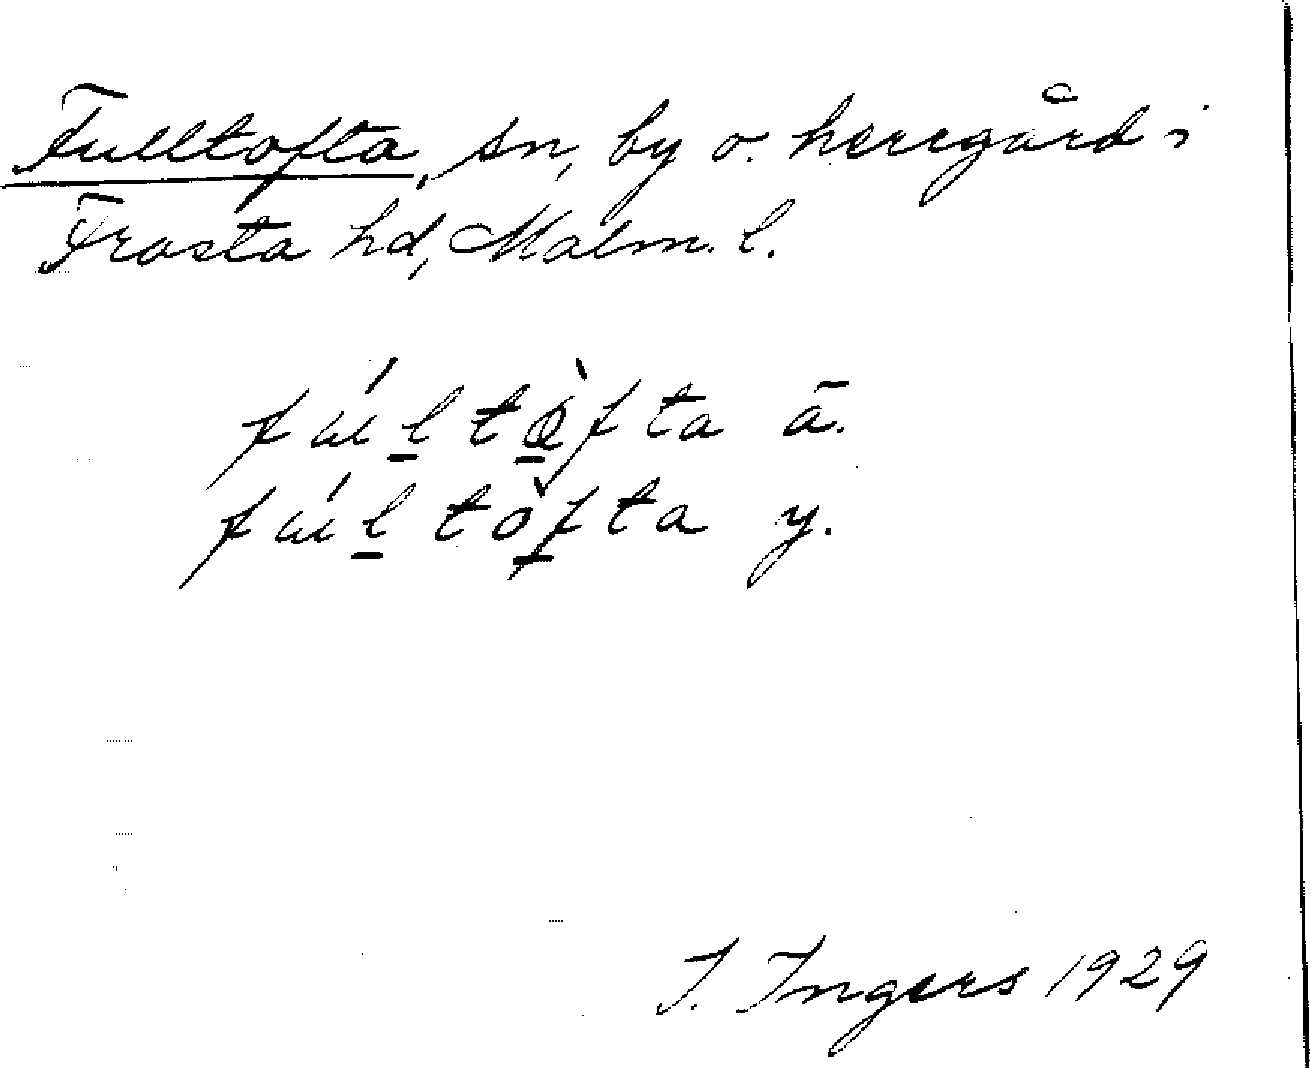 Fulltofta, sn, by o. herrgård i
Frosta hd, Malm. l.
fúl̲tò̲fta ä.
fúl̲tòf̲ta y.
I. Ingers 1929